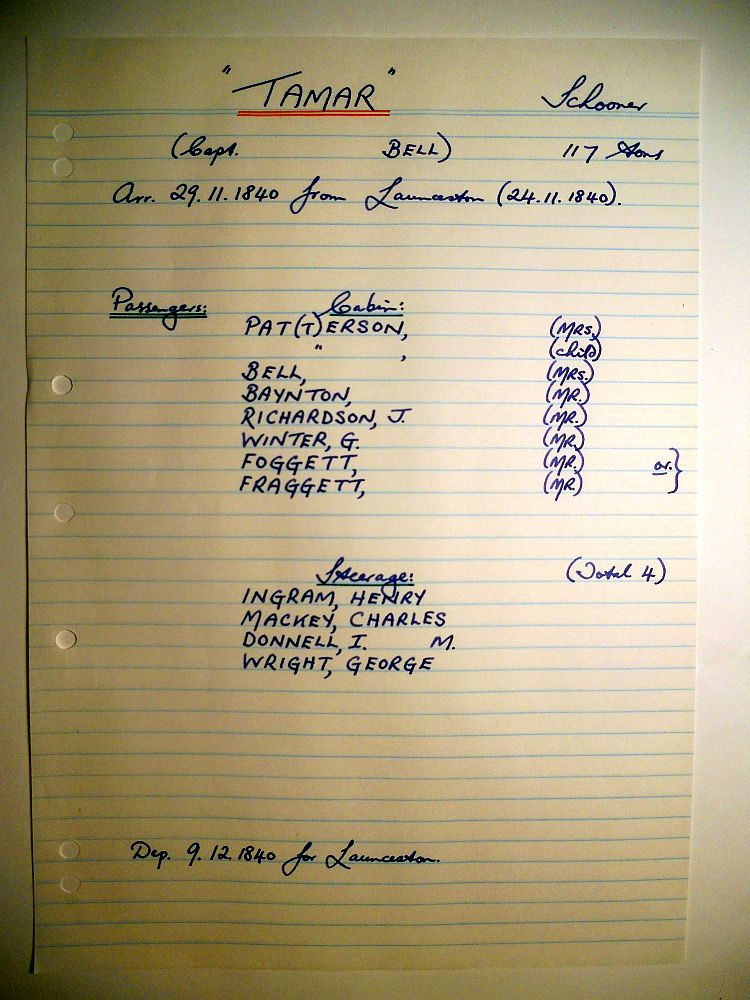 "TAMAR" Schooner
(Capt. BELL) 117 Tons
Arr. 29.11.1840 from Launceston (24.11.1840).
Passengers: Cabin:
PAT(T)ERSON, (MRS.)
" , (child)
BELL, (MRS.)
BAYNTON, (MR.)
RICHARDSON, J. (MR.)
WINTER, G. (MR.)
FOGGETT, (MR.) or. }
FRAGGETT, (MR.)
Steerage: (Total 4)
INGRAM, HENRY
MACKEY, CHARLES
DONNELL, I. M.
WRIGHT, GEORGE
Dep. 9.12.1840 for Launceston.